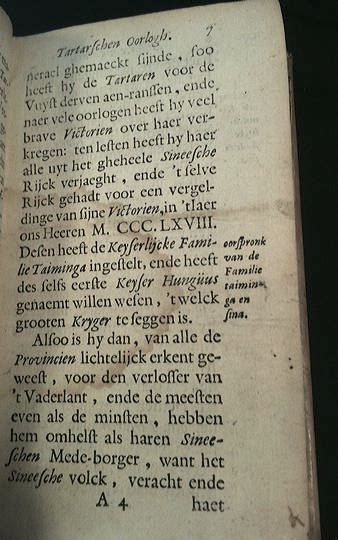 Tartarschen Oorlogh. 7
nerael ghemaeckt sijnde, soo
heeft hy de Tartaren voor de
Vuyst derven aen-ranssen, ende
naer vele oorlogen heeft hy veel
brave Victorien over haer ver-
kregen: ten lesten heeft hy haer
alle uyt het gheheele Sineesche
Rijck verjaeght, ende 't selve
Rijck gehadt voor een vergel-
dinge van sijne Victorien, in 'tIaer
ons Heeren M. CCC. LXVIII.
Desen heeft de Keyserlijcke Fami-
lie Taiminga ingestelt, ende heeft
des selfs eerste Keyser Hungüus
genaemt willen wesen, 't welck
grooten Kryger te seggen is.
oorspronk
van de
Familie
taimin-
ga en
sina.
Alsoo is hy dan, van alle de
Provincien lichtelijck erkent ge-
weest, voor den verlosser van
't Vaderlant, ende de meesten
even als de minsten, hebben
hem omhelst als haren Sinee-
schen Mede-borger, want het
Sineesche volck, veracht ende
A 4 haet